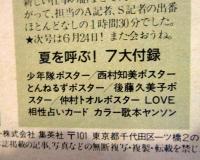 って、担当のA記者、S記者の出番
ほとんどなしの1時間30分でした。
★次号は6月24日!また会おうね。
夏を呼ぶ!7大付録
少年隊ポスター/西村知美ポスター
とんねるずポスター/後藤久美子ポ
スター/仲村トオルポスター LOVE
相性占いカード カラー歌本ヤンソン
株式会社 集英社 〒101 東京都千代田区一ツ橋2の
記事、写真などの無断複写・複製・転載を禁じ